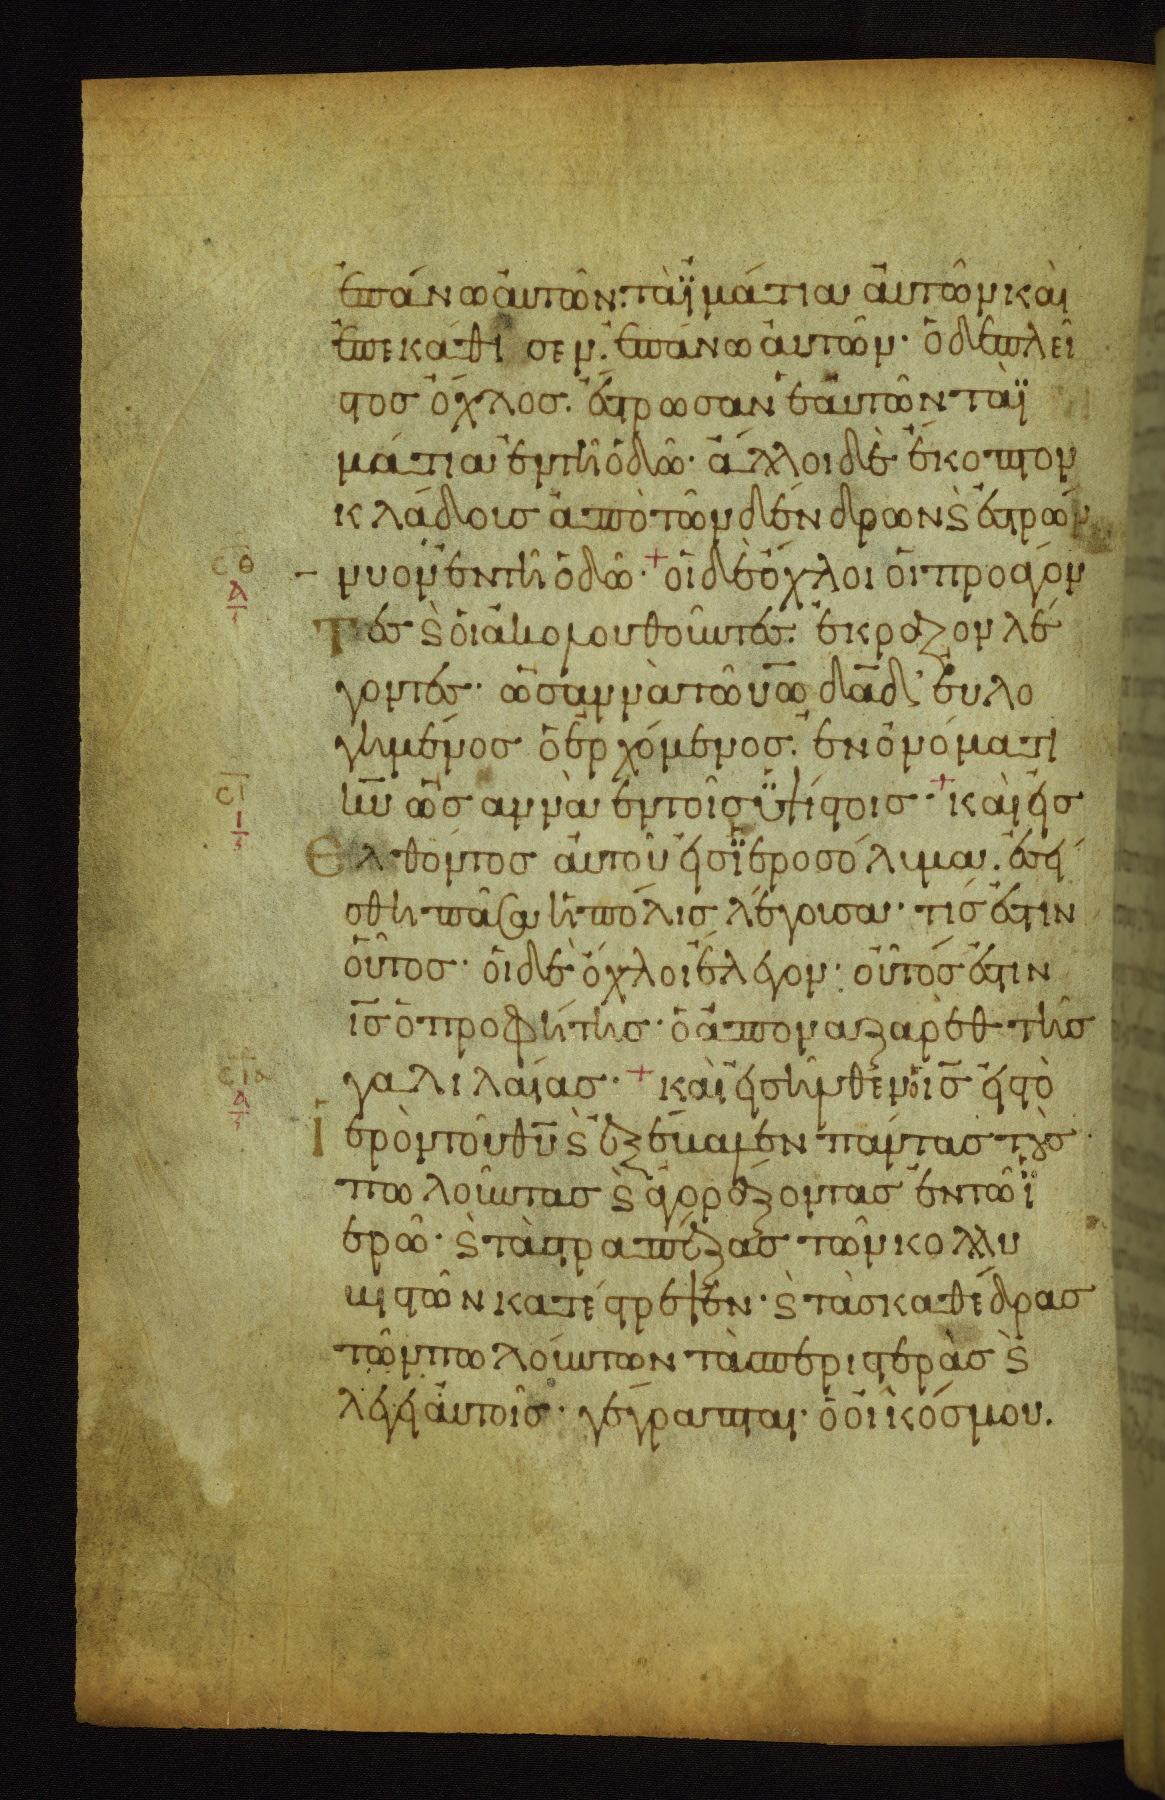 ἐπάνω αὐτῶν. τὰ ἱμάτια αὐτῶν καὶ
ἐπεκάθισεν. ἐπάνω αὐτῶν· ὁ δὲ πλεῖ
στος ὄχλος. ἔστρωσαν ἑαυτῶν τὰ ἱ
μάτια ἐν τῆ ὁδῶ· ἄλλοι δὲ ἔκοπτον
κλάδοις ἀπὸ τῶν δένδρων ϗ ἐστρών
νυον ἐν τῆ ὁδῶ· + οἱ δὲ ὄχλοι οἱ προάγον
τές ϗ οἱ ἀκολουθοῦντές. ἔκραζον λέ
γοντές· ὡσαννὰ τῶ υω δαδ· εὐλο
γημένος ὁ ἐρχόμενος. ἐν ὀνόματι
κυ ὡσαννὰ ἐν τοῖς ὑψίστοις· + καὶ εἰσ
ελθόντος αὐτοῦ εἰς ἱεροσόλιμα. ἐσεί
σθη πᾶσα ἡ πόλις λέγουσα· τίς ἐστιν
οὗτος· οἱ δὲ ὄχλοι ἔλεγον· οὗτός ἐστιν
ις ὁ προφήτης· ὁ ἀπὸ ναζαρὲθ τῆς
γαλιλαίας· + καὶ εἰσῆλθεν ὁ ις εἰς τὸ
ἱερὸν τοῦ θυ ϗ ἐξέβαλεν πάντας τοὺς
πωλοῦντας ϗ ἀγοράζοντας ἐν τῶ ἱ
ερῶ· ϗ τὰς τραπέζας τῶν κολλυ
βιστῶν κατέστρεψεν· ϗ τὰς καθέδρας
τῶν πωλούντων τὰς περιστερὰς ϗ
λέγει αὐτοῖς· γέγραπται· ὁ οἶκός μου.
σθ
α
σι
ι
σια
α